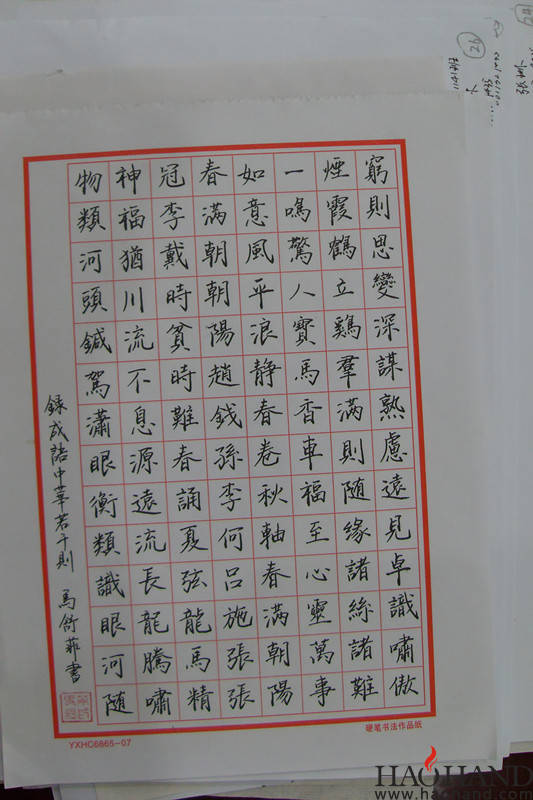 窮則思變深謀熟慮遠見卓識嘯傲
煙霞鶴立鷄羣滿則随緣諸絲諸難
一鳴驚人寶馬香車福至心靈萬事
如意風平浪静春卷秋軸春滿朝陽
春滿朝朝陽趙錢孫李何吕施張張
冠李戴時貧時難春誦夏弦龍馬精
神福猶川流不息源遠流長龍騰嘯
物類河頭鍼駕瀟眼衡類識眼河随
録成語中華若干則 馬舒菲書
YXHC6865-07
硬笔书法作品纸
HAOHAND
www.haohand.com